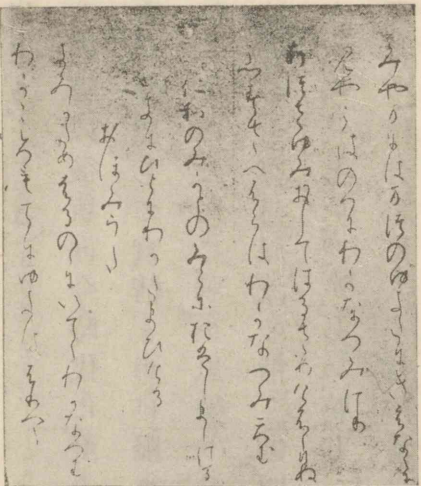 みやまにはまつのゆきたにきえなくに
みやこはのへにわかなつみけり
あつさゆみおしてはるさめけふふりぬ
あすさへふらはわかなつみてむ
仁和のみかとのみこにおはしましける
ときにひとにわかなたまひける
おほみうた
きみかためはるのゝにいてゝわかなつむ
わかころもてにゆきはふりつゝ